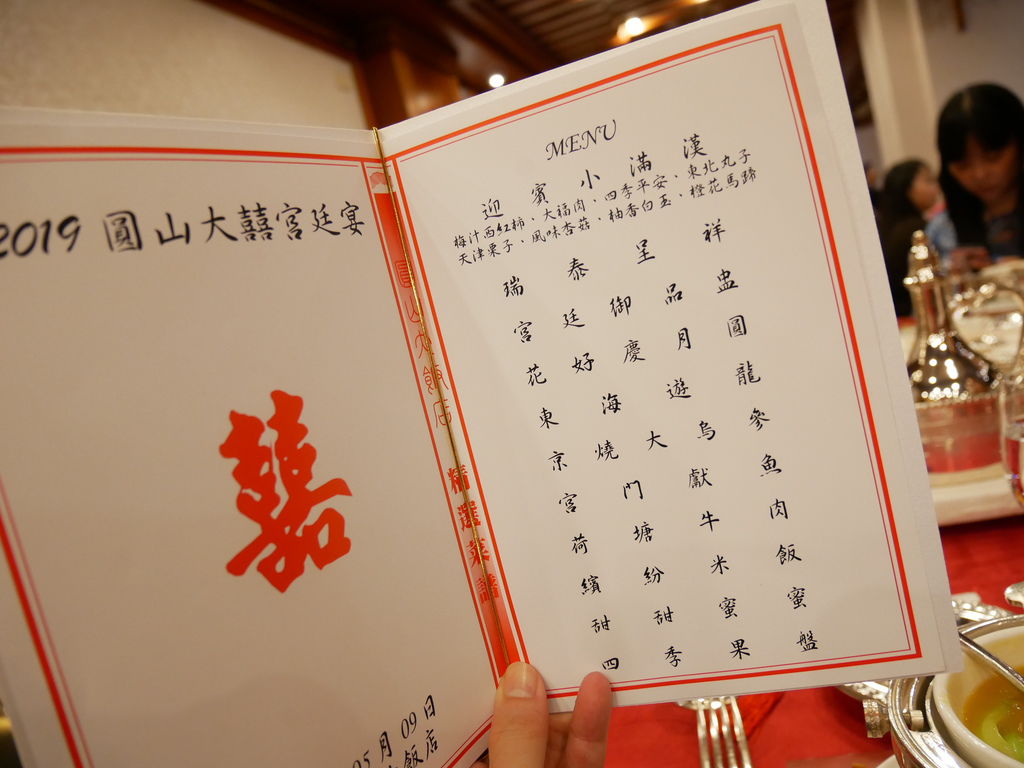 2019 圓山大囍宮廷宴
嘉
05 月 09 日
飯店
圓山大飯店 精選菜譜
MENU
迎賓小滿漢
梅汁西紅柿、大福肉、四季平安、東北丸子
天津栗子、風味香菇、柚香白玉、橙花馬蹄
瑞泰呈祥
宮廷御品盅
花好慶月圓
東海遊龍
京燒大烏參
宮門獻魚
荷塘牛肉
繽紛米飯
甜甜蜜蜜
四季果盤